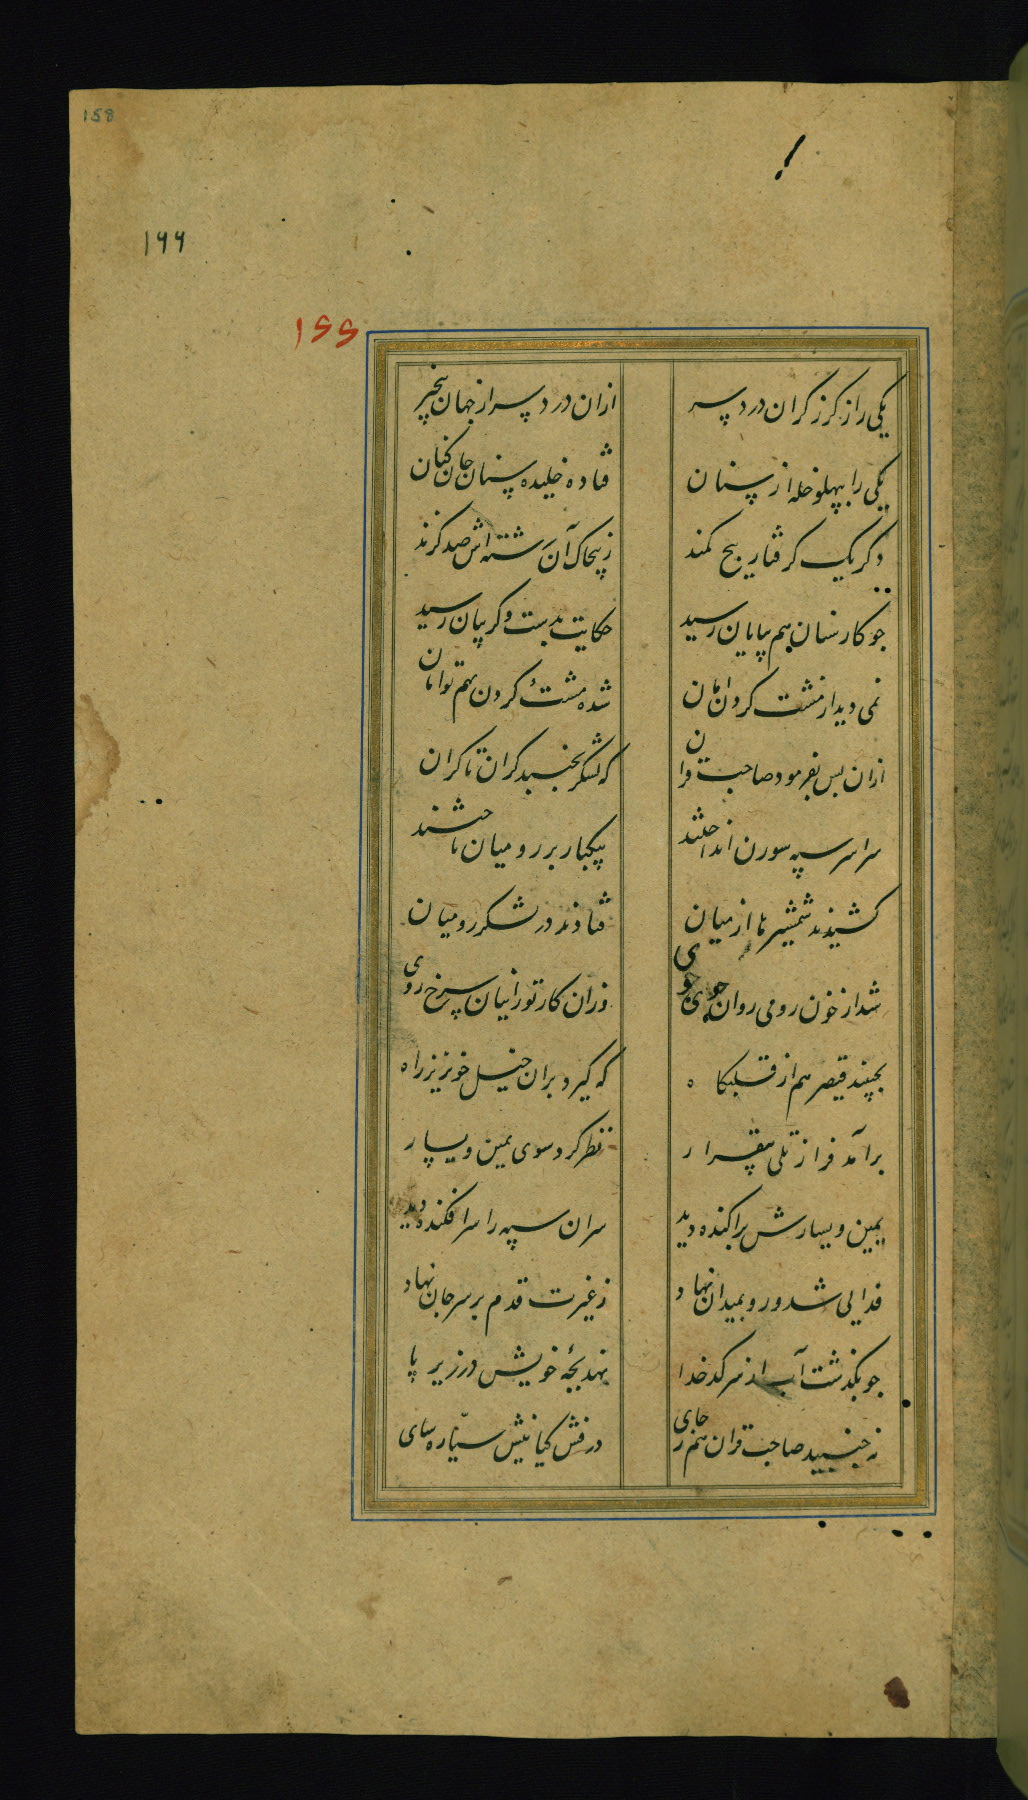 158
۱۶۶
۱۵۵
یکی را ز کرز کران درد سر
ازان درد سر از جهان بیخبر
یکی را بپهلو خله از سنان
فتاده خلیده سنان جان کنان
دکر یک کرفتار پیچ کمند
ز پیچاک آن رشته اش صد کزند
جو کارسنان هم بپایان رسید
حکایت بدست و کریبان رسید
نمی دید از مشت کردن امان
شده مشت و کردن بهم توامان
ازان بس بفرمود صاحب قران
که لشکر بجنبد کران تا کران
سراسر سپه سورن انداختند
بیکبار بر رومیان تاختند
کشیدند شمشیرها از میان
فتادند در لشکر رومیان
شد از خون رومی روان جوی جوی
وزان کار تورانیان سرخ روی
بجنبید قیصر هم از قلبکاه
که کیرد بران خیل خونریز راه
برآمد فراز تلی بیقرار
نظر کرد سوی یمین و یسار
یمین و یسارش براکنده دید
سران سپه را سرافکنده دید
فدایی شد و رو بمیدان نهاد
ز غیرت قدم بر سر جان نهاد
جو بکذشت آب از سر کدخدا
نهد بچهٔ خویش در زیر پا
نه جنبید صاحب قران هم ز جای
درفش کیانیش ستاره سای